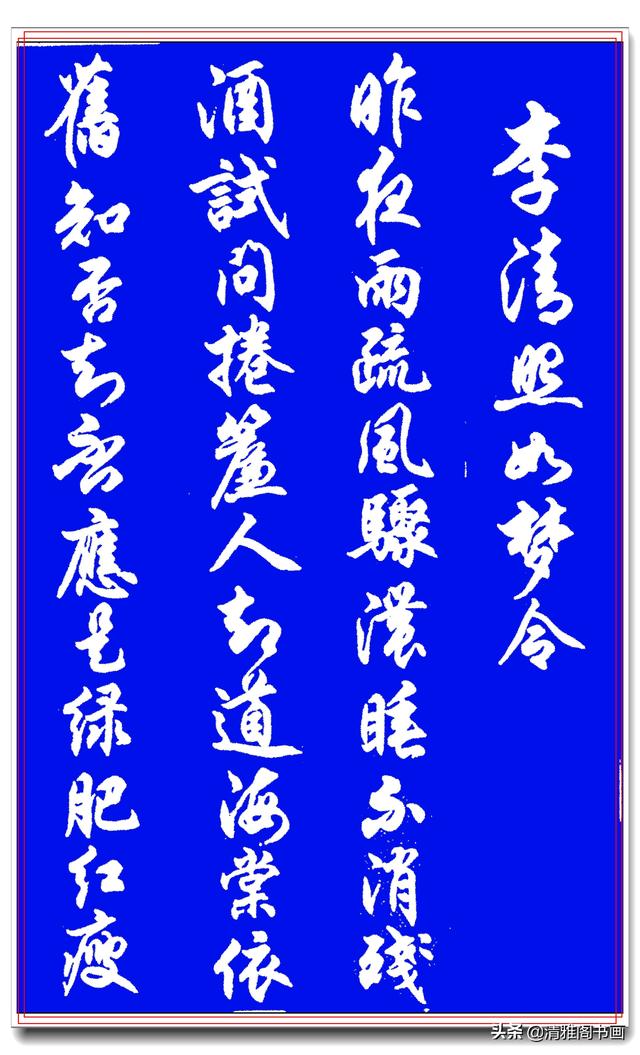 李清照如梦令
昨夜雨疏風驟濃睡不消殘
酒試問捲簾人却道海棠依
舊知否知否應是绿肥红瘦
头条 @清雅阁书画